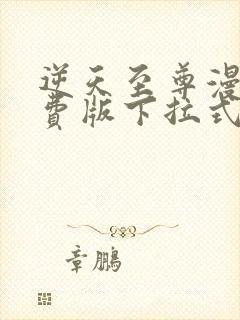 逆天至尊漫
费版下拉式
章鹏